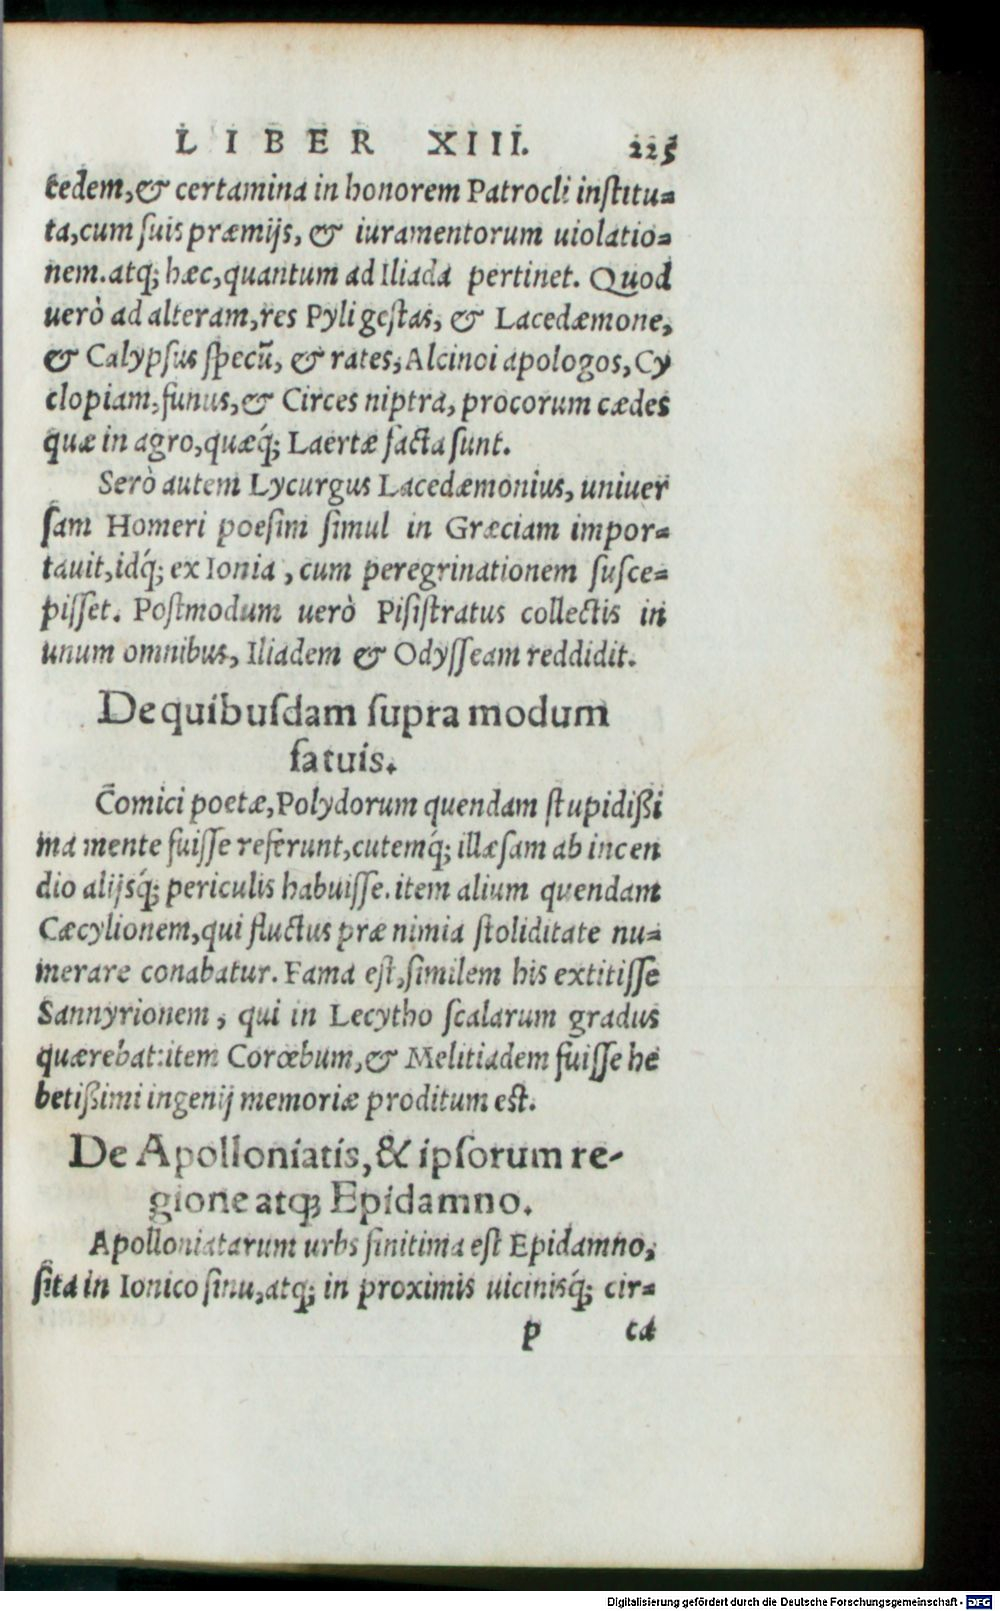 LIBER XIII. 225
cedem, & certamina in honorem Patrocli institu=
ta, cum suis præmijs, & iuramentorum uiolatio=
nem. atq; hæc, quantum ad Iliada pertinet. Quod
uerò ad alteram, res Pyli gestas, & Lacedæmone,
& Calypsus specū, & rates, Alcinoi apologos, Cy
clopiam, funus, & Circes niptra, procorum cædes
quæ in agro, quæq́; Laertæ facta sunt.
Serò autem Lycurgus Lacedæmonius, uniuer
sam Homeri poesim simul in Græciam impor=
tauit, idq́; ex Ionia, cum peregrinationem susce=
pisset. Postmodum uerò Pisistratus collectis in
unum omnibus, Iliadem & Odysseam reddidit.
De quibusdam supra modum
fatuis.
Comici poetæ, Polydorum quendam stupidißi
ma mente fuisse referunt, cutemq́; illæsam ab incen
dio alijsq́; periculis habuisse. item alium quendam
Cæcylionem, qui fluctus præ nimia stoliditate nu=
merare conabatur. Fama est, similem his extitisse
Sannyrionem, qui in Lecytho scalarum gradus
quærebat: item Corœbum, & Melitiadem fuisse he
betißimi ingenij memoriæ proditum est.
De Apolloniatis, & ipsorum re-
gione atq; Epidamno.
Apolloniatarum urbs finitima est Epidamno,
sita in Ionico sinu, atq; in proximis uicinisq́; cir=
p ca
Digitalisierung gefördert durch die Deutsche Forschungsgemeinschaft - DFG